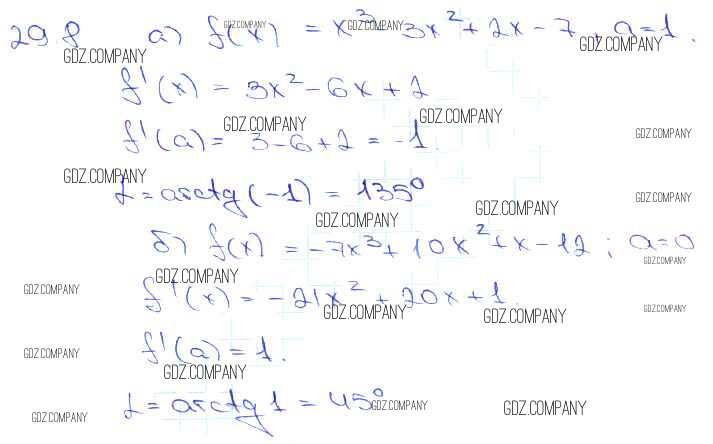 29.8 а) f(x) = x³ - 3x² + 2x - 7, a = 1.
f'(x) = 3x² - 6x + 2
f'(a) = 3 - 6 + 2 = -1.
α = arctg(-1) = 135°
б) f(x) = -7x³ + 10x² + x - 12; a = 0
f'(x) = -21x² + 20x + 1.
f'(a) = 1.
α = arctg 1 = 45°
GDZ.COMPANY GDZ.COMPANY
GDZ.COMPANY GDZ.COMPANY
GDZ.COMPANY GDZ.COMPANY GDZ.COMPANY
GDZ.COMPANY GDZ.COMPANY
GDZ.COMPANY GDZ.COMPANY
GDZ.COMPANY GDZ.COMPANY
GDZ.COMPANY GDZ.COMPANY GDZ.COMPANY GDZ.COMPANY
GDZ.COMPANY GDZ.COMPANY
GDZ.COMPANY GDZ.COMPANY GDZ.COMPANY